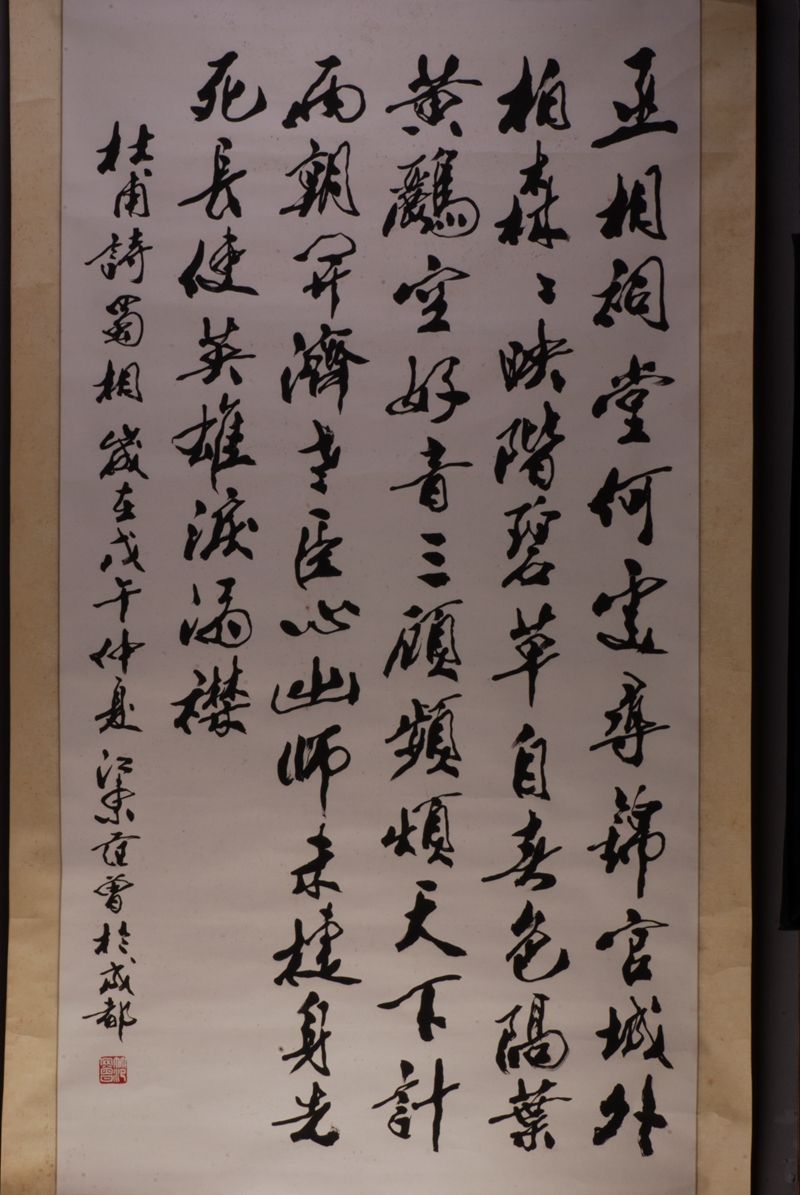 丞相祠堂何處尋錦官城外
柏森々映階碧草自春色隔葉
黃鸝空好音三顧頻煩天下計
兩朝開濟老臣心出師未捷身先
死長使英雄淚滿襟
杜甫詩蜀相歲在戊午仲夏江東范曾於成都